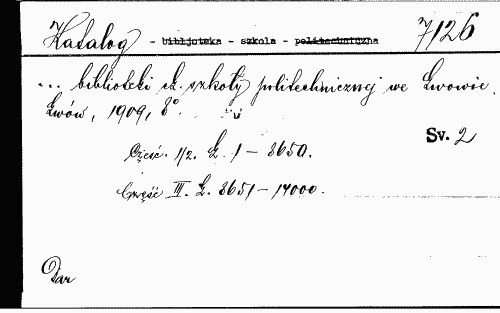 Katalog - biblioteka - szkola - politechniczna 7126
... biblioteki ck. szkoły politechnicznej we Lwowie.
Lwów, 1909, 8°.
Sv. 2
Część. 1/2. L. 1 - 3650.
Część III. L. 3651 - 14000.
Dar